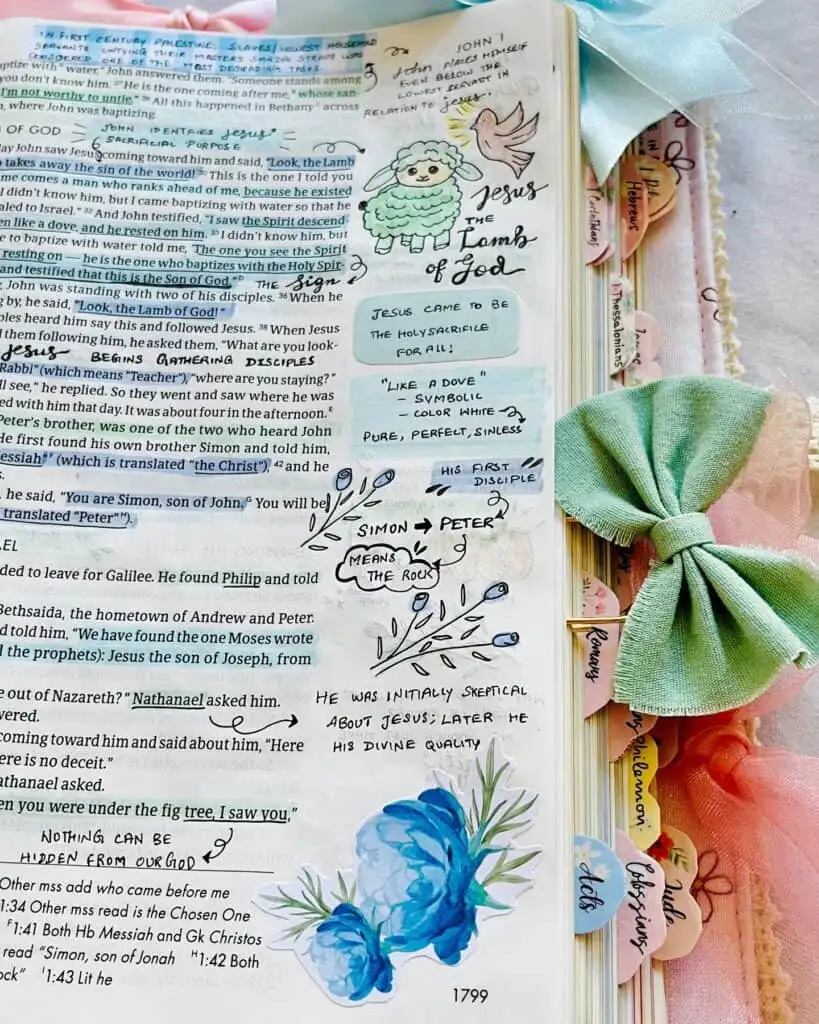 IN FIRST CENTURY PALESTINE, SLAVES/LOWEST HOUSEHOLD
SERVANTS UNTYING THEIR MASTERS SANDAL STRAPS WAS
CONSIDERED ONE OF THE MOST DEGRADING TASKS.
JOHN 1
John PLACES HIMSELF
EVEN BELOW THE
LOWEST SERVANT IN
RELATION TO Jesus.
aptize with water," John answered them. "Someone stands among
you don't know him. 27 He is the one coming after me, whose san-
I'm not worthy to untie." 28 All this happened in Bethany across
, where John was baptizing.
OF GOD
JOHN IDENTIFIES Jesus'
SACRIFICIAL PURPOSE
ay John saw Jesus coming toward him and said, "Look, the Lamb
takes away the sin of the world! 30 This is the one I told you
me comes a man who ranks ahead of me, because he existed
I didn't know him, but I came baptizing with water so that he
aled to Israel." 32 And John testified, "I saw the Spirit descend-
en like a dove, and he rested on him. 33 I didn't know him, but
e to baptize with water told me, 'The one you see the Spirit
resting on — he is the one who baptizes with the Holy Spir-
and testified that this is the Son of God." D
THE Sign
Jesus
THE
Lamb
of God
, John was standing with two of his disciples. 36 When he
g by, he said, "Look, the Lamb of God!"
ples heard him say this and followed Jesus. 38 When Jesus
d them following him, he asked them, "What are you look-
Jesus BEGINS GATHERING DISCIPLES
Rabbi" (which means "Teacher"), "where are you staying?"
ll see," he replied. So they went and saw where he was
ed with him that day. It was about four in the afternoon. E
Peter's brother, was one of the two who heard John
He first found his own brother Simon and told him,
essiah" F (which is translated "the Christ"), 42 and he
s.
, he said, "You are Simon, son of John. G You will be
translated "Peter" H).
JESUS CAME TO BE
THE HOLY SACRIFICE
FOR ALL!
"LIKE A DOVE"
- SYMBOLIC
- COLOR WHITE
PURE, PERFECT, SINLESS
HIS FIRST
DISCIPLE
SIMON → PETER
MEANS
THE ROCK
EL
ded to leave for Galilee. He found Philip and told
Bethsaida, the hometown of Andrew and Peter.
d told him, "We have found the one Moses wrote
l the prophets): Jesus the son of Joseph, from
e out of Nazareth?" Nathanael asked him.
wered.
coming toward him and said about him, "Here
ere is no deceit."
athanael asked.
en you were under the fig tree, I saw you,"
HE WAS INITIALLY SKEPTICAL
ABOUT JESUS; LATER HE
HIS DIVINE QUALITY
NOTHING CAN BE
HIDDEN FROM OUR GOD
Other mss add who came before me
1:34 Other mss read is the Chosen One
F 1:41 Both Hb Messiah and Gk Christos
read "Simon, son of Jonah H 1:42 Both
ock" I 1:43 Lit he
1799
Hebrews
Corinthians
Thessalonians
James
Romans
Philemon
Acts
Colossians
Jude